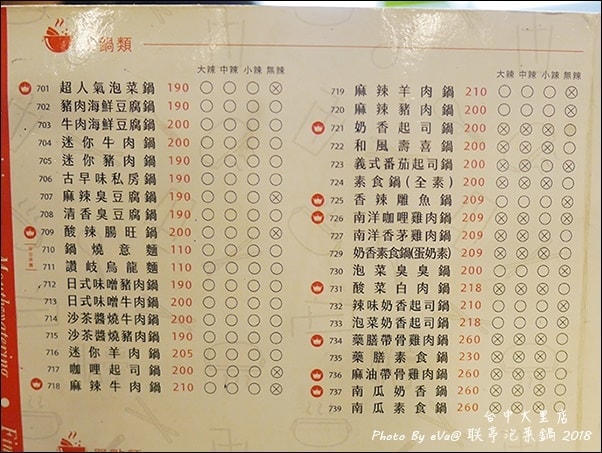 鍋類
大辣 中辣 小辣 無辣
701 超人氣泡菜鍋 190
702 豬肉海鮮豆腐鍋 190
703 牛肉海鮮豆腐鍋 200
704 迷你牛肉鍋 200
705 迷你豬肉鍋 190
706 古早味私房鍋 190
707 麻辣臭豆腐鍋 190
708 清香臭豆腐鍋 190
709 酸辣腸旺鍋 200
710 鍋燒意麵 110
711 讚岐烏龍麵 110
712 日式味噌豬肉鍋 190
713 日式味噌牛肉鍋 200
714 沙茶醬燒牛肉鍋 200
715 沙茶醬燒豬肉鍋 190
716 迷你羊肉鍋 205
717 咖哩起司鍋 200
718 麻辣牛肉鍋 210
大辣 中辣 小辣 無辣
719 麻辣羊肉鍋 210
720 麻辣豬肉鍋 200
721 奶香起司鍋 200
722 和風壽喜鍋 200
723 義式番茄起司鍋 200
724 素食鍋(全素) 200
725 香辣雕魚鍋 209
726 南洋咖哩雞肉鍋 209
727 南洋香茅雞肉鍋 209
729 奶香素食鍋(蛋奶素) 209
730 泡菜臭臭鍋 200
731 酸菜白肉鍋 218
732 辣味奶香起司鍋 210
733 泡菜奶香起司鍋 218
734 藥膳帶骨雞肉鍋 260
735 藥膳素食鍋 230
736 麻油帶骨雞肉鍋 260
737 南瓜奶香鍋 260
739 南瓜素食鍋 260
台中大里店
Photo By eVa@ 联亭泡菜鍋 2018